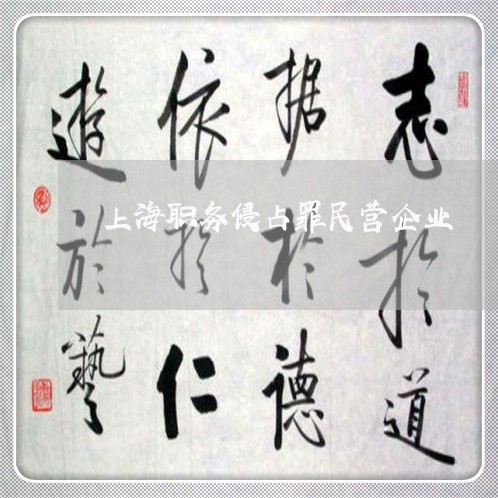 志於道
据於德
依於仁
遊於藝
上海职务侵占罪民营企业